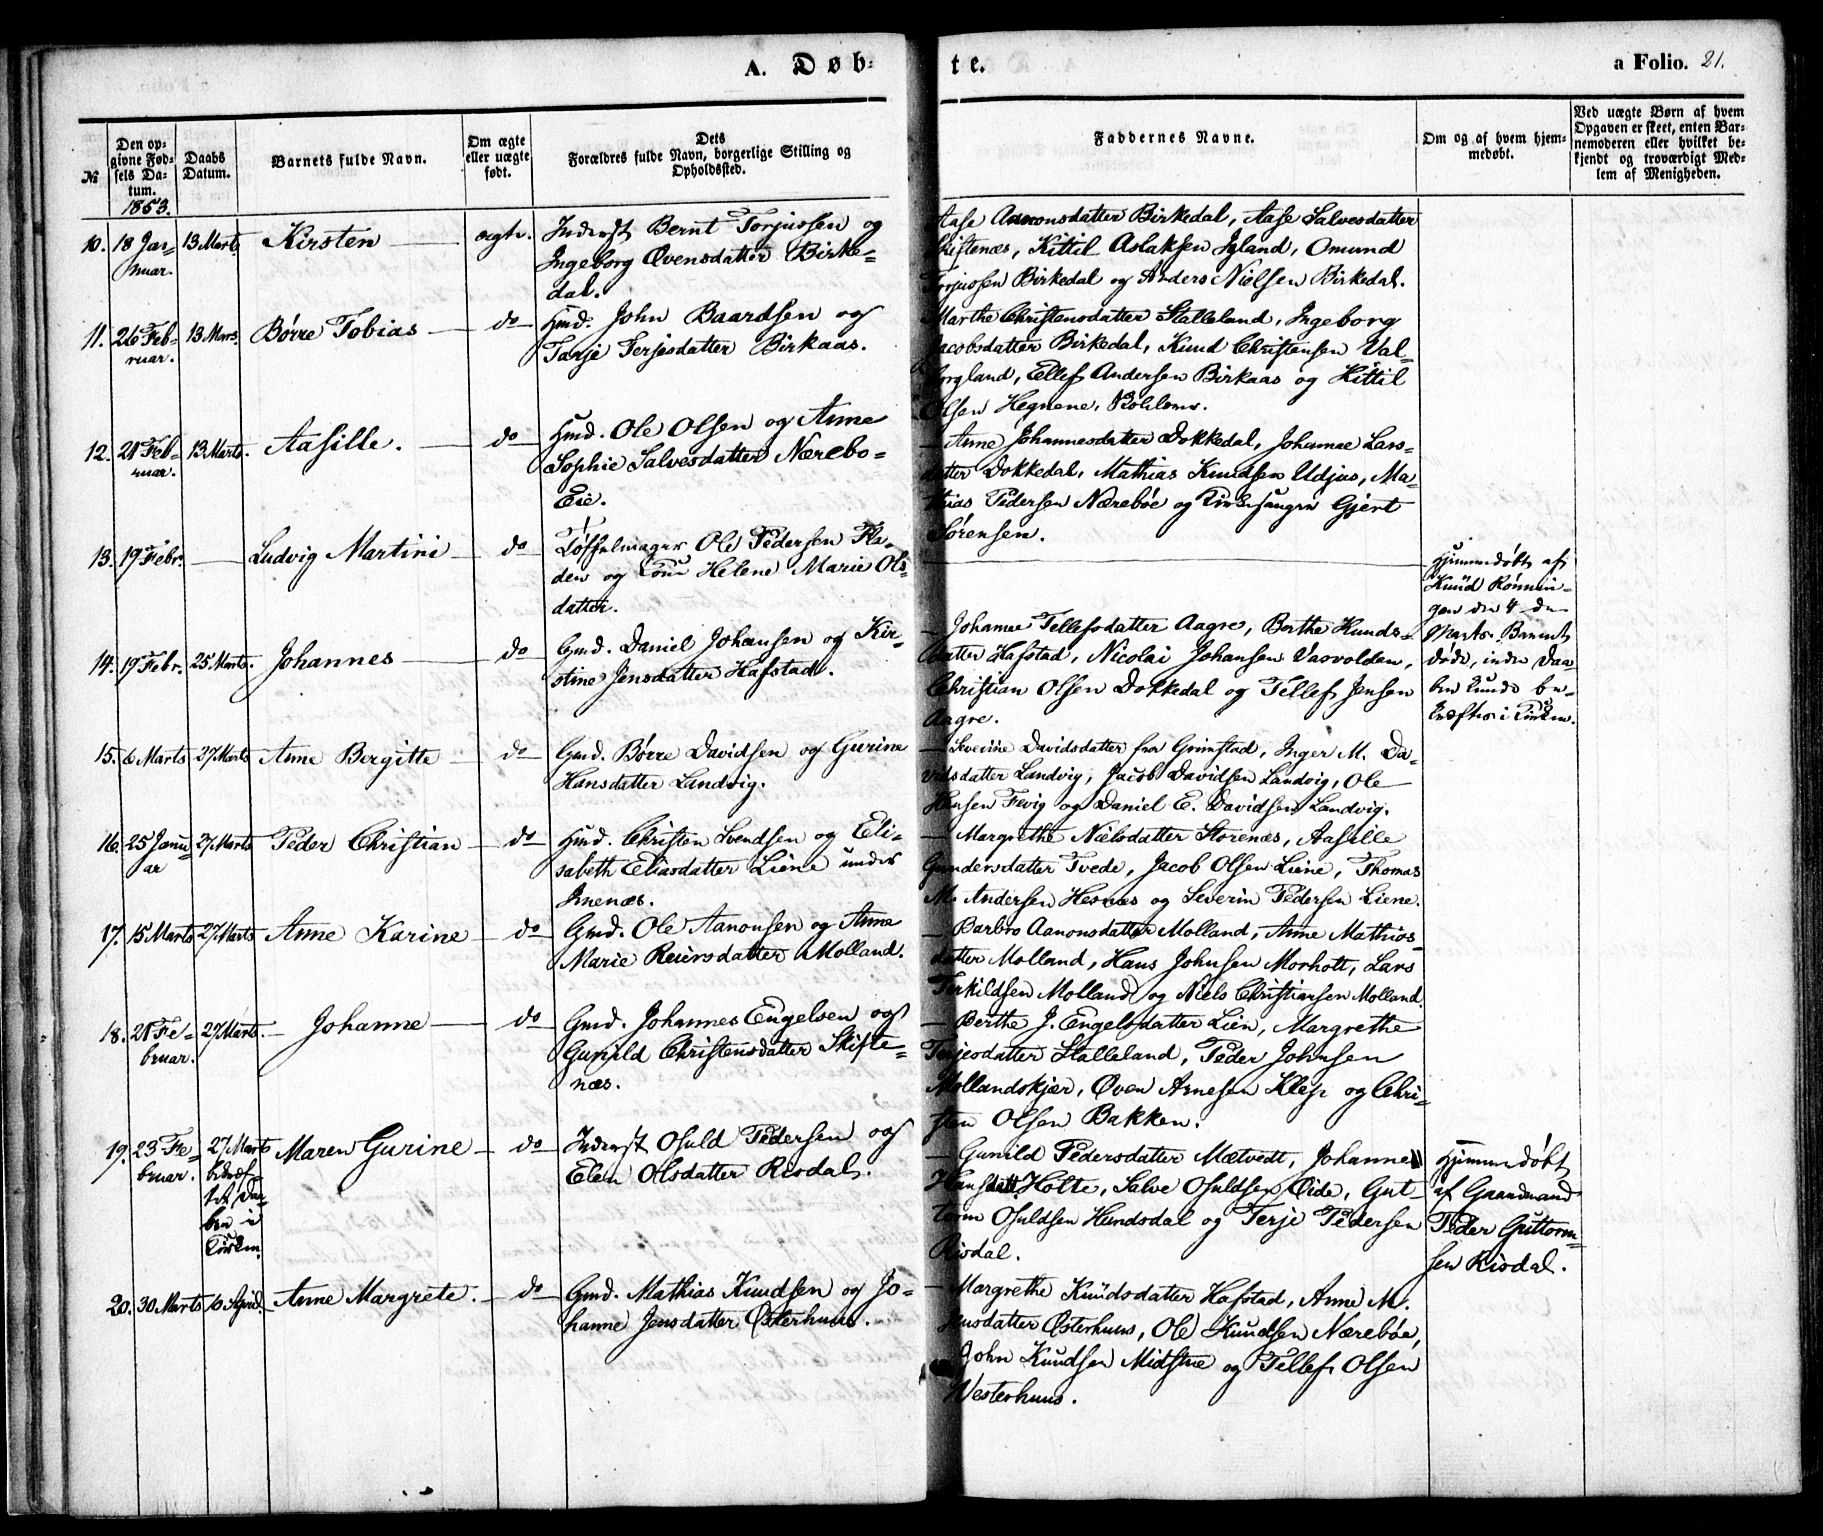 A. Døb-
te.
a Folio. 21.
№
Den op-
givne Fød-
sels Da-
tum.
1853.
Daabs
Datum.
Barnets fulde Navn.
Om ægte
eller uægte
født.
Dets
Forældres fulde Navn, borgerlige Stilling og
Opholdssted.
Faddernes Navne.
Om og af hvem hjem-
medøbt.
Ved uægte Børn af hvem
Opgaven er skeet, enten Bar-
nemoderen eller hvilket be-
kjendt og troværdigt Med-
lem af Menigheden.
10. 18 Jar-
nuar.
13 Marts
Kirsten
ægte.
Inderst Bernt Torjussen og
Ingeborg Øvensdatter Birke-
dal.
Aase Aanonsdatter Birkedal, Aase Salvesdatter
Skiftenæs, Kittil Aslaksen Igland, Omund
Torjussen Birkedal og Anders Nielsen Birkedal.
11. 26 Feb-
ruar.
13 Mars.
Børre Tobias
do
Hmd. John Baardsen og
Tarje Terjesdatter Birkaas.
Marthe Christensdatter Stalleland, Ingeborg
Jacobsdatter Birkedal, Knud Christensen Val-
borgland, Ellef Andersen Birkaas og Kittil
Olsen Hegnene,
12. 21 Feb-
ruar.
13 Marts.
Aasille.
do
Hmd. Ole Olsen og Anne
Sophie Salvesdatter Nærebo-
Eie.
Anne Johannesdatter Dokkedal, Johanne Lars-
datter Dokkedal, Mathias Knudsen Udjus, Ma-
thias Pedersen Nærebøe og Kirkesanger Gjert
Sørensen.
13. 19 Febr.
Ludvig Martini
do
Tøffelmager Ole Pedersen Fla-
den og Kone Helene Marie Ols-
datter.
Hjemmedøbt af
Knud Rønnin-
gen den 4 de
Marts. Barnet
døde, inden Daa-
ben kunde be-
kræftes i Kirken.
14. 19 Febr.
25 Marts.
Johannes
do
Gmd. Daniel Johansen og Kir-
stine Jensdatter Hafstad.
Johanne Tellefsdatter Aagre, Berthe Knuds-
datter Hafstad, Nicolai Johansen Vasvolden,
Christian Olsen Dokkedal og Tellef Jensen
Aagre.
15. 6 Marts
27 Marts
Anne Bergitte
do
Gmd. Børre Davidsen og Gurine
Hansdatter Landvig.
Severine Davidsdatter fra Grimstad, Inger M. Da-
vidsdatter Landvig, Jacob Davidsen Landvig, Ole
Hansen Fevig og Daniel E. Davidsen Landvig.
16. 25 Janu-
ar
27 Marts
Peder Christian
do
Hmd. Christen Svendsen og Eli-
sabeth Eliasdatter Liene under
Imenæs.
Margrethe Nielsdatter Storenæs, Aasille
Gundersdatter Tvede, Jacob Olsen Liene, Thomas
M. Andersen Hesnæs og Severin Pedersen Liene.
17. 15 Marts
27 Marts
Anne Karine
do
Gmd. Ole Aanonsen og Anne
Marie Reiersdatter Molland.
Barbro Aanonsdatter Molland, Anne Mathias-
datter Molland, Hans Johnsen Morholt, Lars
Terkildsen Molland og Niels Christiansen Molland.
18. 21 Fe-
bruar.
27 Marts.
Johanne
do
Gmd. Johannes Engelsen og
Gunild Christensdatter Skifte-
næs.
Berthe J. Engelsdatter Lien, Margrethe
Terjesdatter Stalleland, Peder Johnsen
Mollandskjær, Øven Arnesen Klep og Chri-
sten Olsen Bakken.
19. 23 Fe-
bruar.
27 Marts
bekræf-
tet Daa-
ben i
Kirken.
Maren Gurine
do
Inderst Osuld Pedersen og
Elen Olsdatter Risdal.
Gunild Pedersdatter Mætvedt, Johanne
Hansdatt. Holte, Salve Osuldsen Eide, Gut-
torm Osuldsen Hundsdal og Terje Pedersen
Risdal.
Hjemmedøbt
af Gaardmand
Peder Guttorm-
sen Risdal.
20. 30 Marts
10 April.
Anne Margrete.
do
Gmd. Mathias Knudsen og Jo-
hanne Jensdatter Østerhuus.
Margrethe Knudsdatter Hafstad, Anne M.
Jensdatter Østerhuus, Ole Knudsen Nærebøe,
John Knudsen Midstue og Tellef Olsen
Vesterhuus.